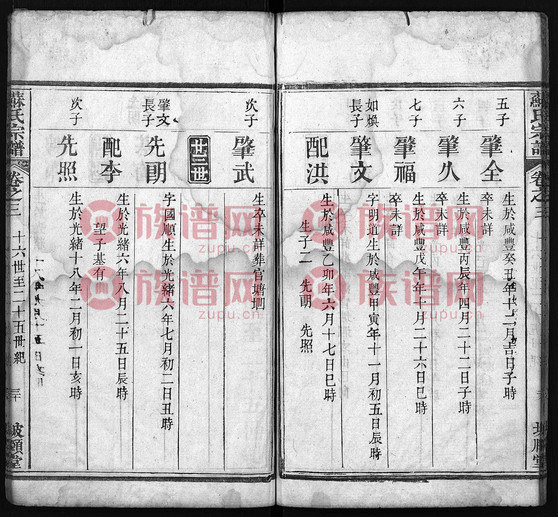 五子
肇全
生於咸豐癸丑年十二月吉日子時
卒未詳
六子
肇久
生於咸豐丙辰年四月二十二日子時
卒未詳
七子
肇福
生於咸豐戊午年七月二十六日巳時
卒未詳
如煥子
肇文
字明道生於咸豐甲寅年十一月初五日辰時
配洪
生於咸豐乙卯年六月十七日巳時
生子二 先明 先照
次子
肇武
生卒未詳葬官塘
廿三世
肇文長子
先明
字國順生於光緒六年七月初二日丑時
配李
生於光緒六年八月二十五日辰時
望子基有
次子
先照
生於光緒十八年二月初一日亥時
蘇氏宗譜
卷之三
十六世至二十五世紀
坡頴堂
蘇氏宗譜
卷之三
族谱网
zupu.cn
族谱网
zupu.cn
族谱网
zupu.cn
族谱网
zupu.cn